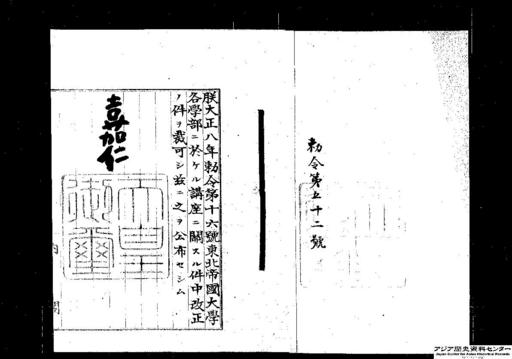 勅令第五十二號
朕大正八年勅令第十六號東北帝國大學
各學部ニ於ケル講座ニ關スル件中改正
ノ件ヲ裁可シ茲ニ之ヲ公布セシム
嘉仁
天皇御璽
内閣
アジア歴史資料センター
Japan Center for Asian Historical Records